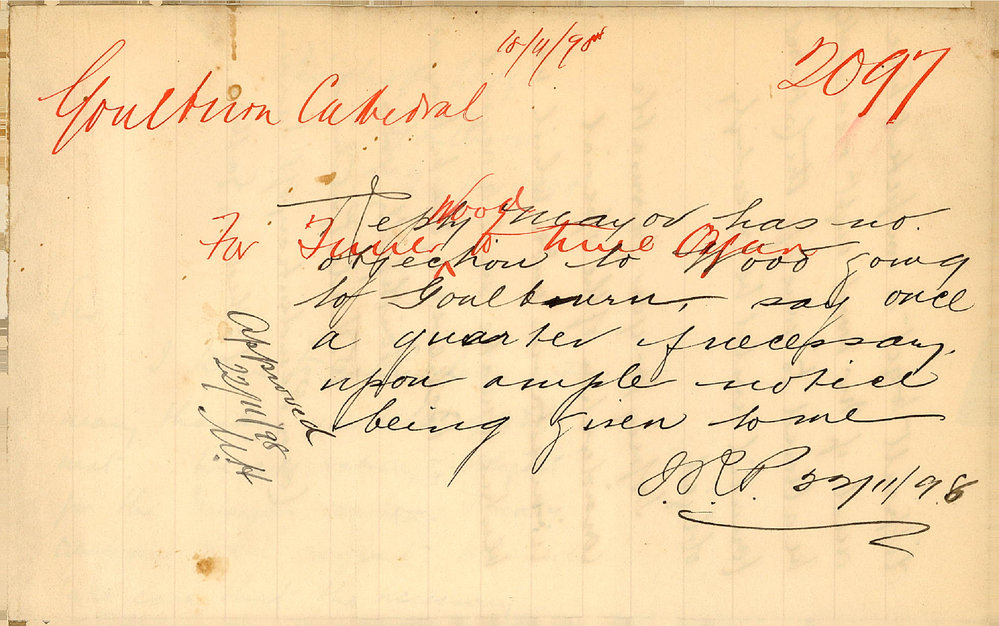 18/11/98
2097
Goulburn Cathedral
For Tuner Wood to tune Organ
Reply Mayor has no
objection to Wood going
to Goulburn, say once
a quarter if necessary,
upon ample notice
being given to me
22/11/98
Approved
22/11/98
M.H